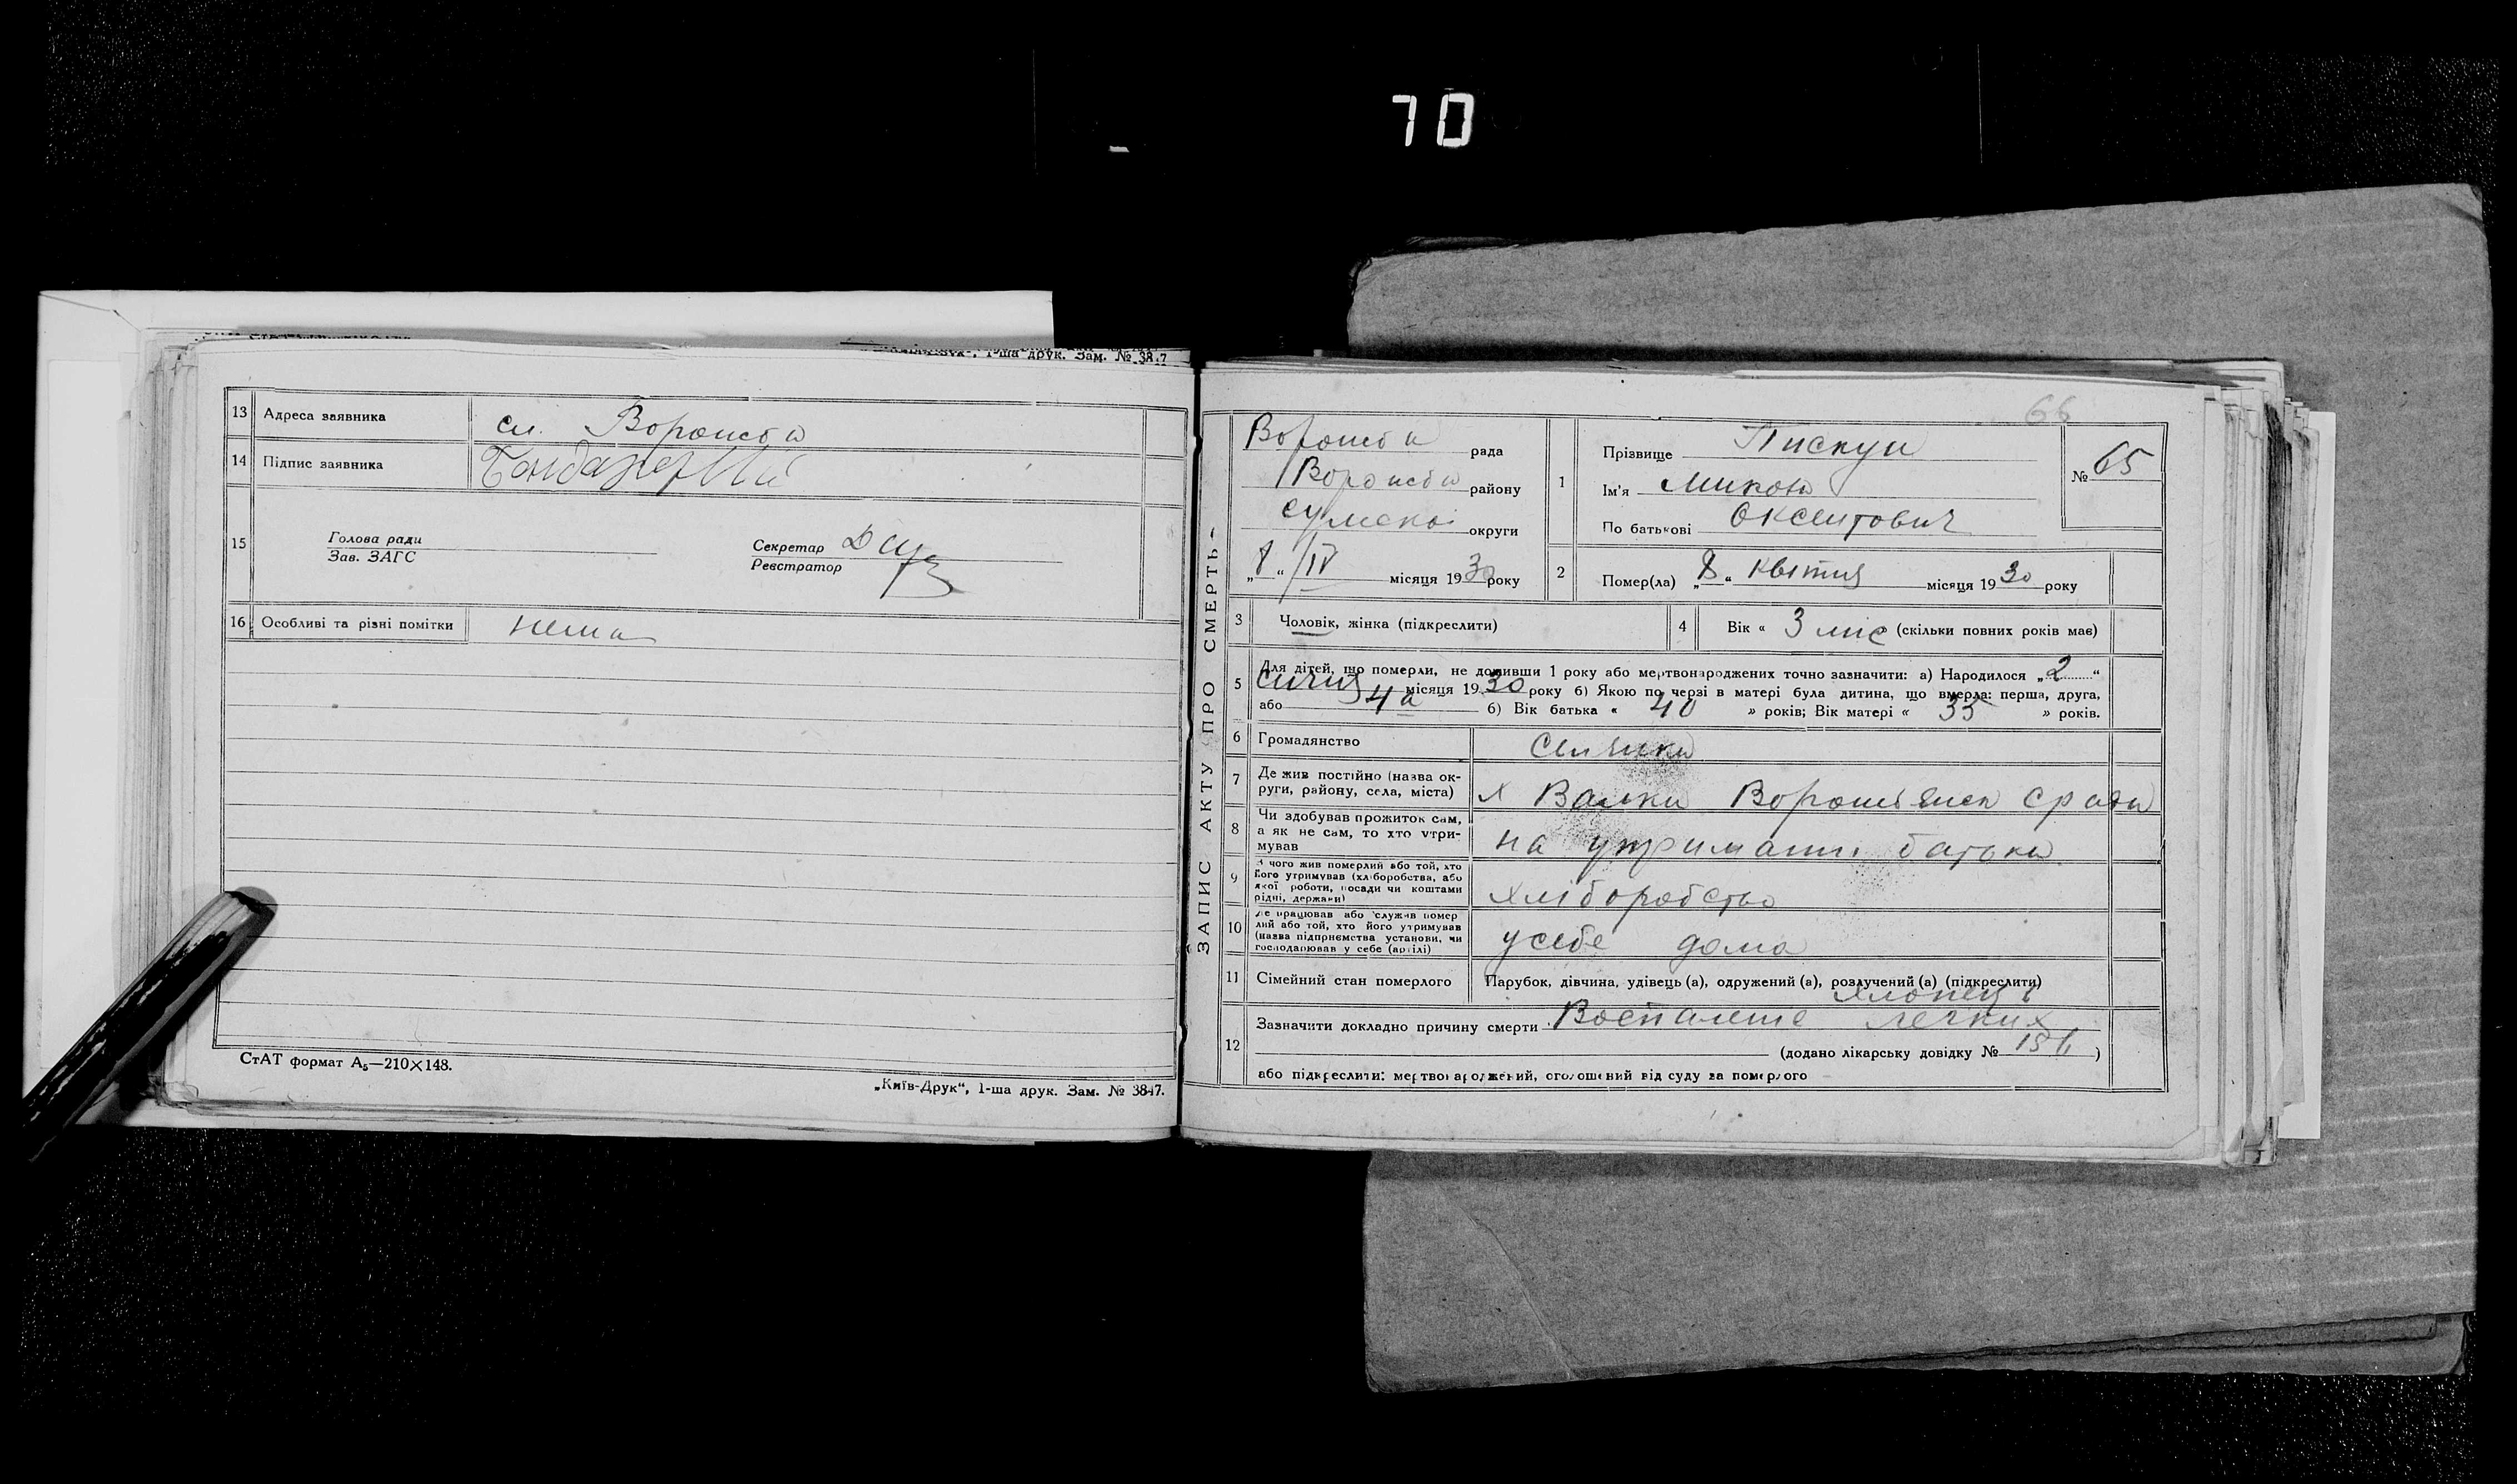 70
1-ша друк. Зам. № 3847
13 Адреса заявника сл. Ворожба
14 Підпис заявника
15 Голова ради
Зав. ЗАГС
Секретар
Реєстратор
16 Особливі та різні помітки нема
СтАТ формат А₅—210×148.
„Київ-Друк“, 1-ша друк. Зам. № 3847.
ЗАПИС АКТУ ПРО СМЕРТЬ
66
Ворожба рада
Ворожба району
Сумської округи
„8“ IV місяця 1930 року
1 Прізвище Пискун
Ім'я Микола
По батькові Оксентович
№ 65
2 Помер(ла) „8“ квітня місяця 1930 року
3 Чоловік, жінка (підкреслити)
4 Вік « 3 міс (скільки повних років має)
5 Для дітей, що померли, не доживши 1 року або мертвонароджених точно зазначити: а) Народилося „2“
січня місяця 1930 року б) Якою по черзі в матері була дитина, що вмерла: перша, друга,
або 4а б) Вік батька « 40 » років; Вік матері « 35 » років.
6 Громадянство
7 Де жив постійно (назва ок-
руги, району, села, міста) х Валки Ворожбянск сради
8 Чи здобував прожиток сам,
а як не сам, то хто утри-
мував на утриманні батька
9 З чого жив померлий або той, хто
його утримував (хліборобства, або
якої роботи, посади чи коштами
рідні, держави) хліборобство
10 Де працював або служив помер
лий або той, хто його утримував
(назва підприємства установи, чи
господарював у себе (артілі) у себе дома
11 Сімейний стан померлого Парубок, дівчина, удівець (а), одружений (а), розлучений (а) (підкреслити)
хлопець
12 Зазначити докладно причину смерти Воспаление легких
(додано лікарську довідку № )
або підкреслити: мертвонароджений, оголошений від суду за померлого